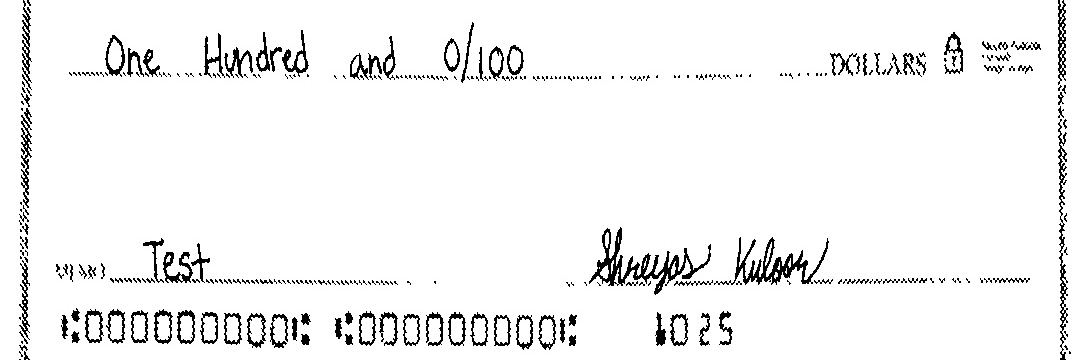 One Hundred and 0/100 DOLLARS
MEMO Test Shreyas Kuloor
⑆000000000⑆ ⑆000000000⑆ 1025